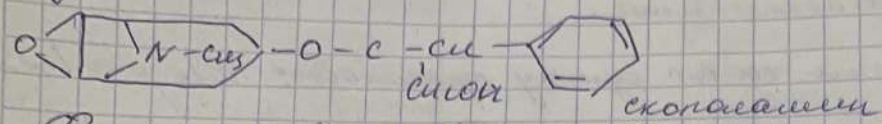 O N-CH₃ -O-C-CH-
CH₂OH
скополамин